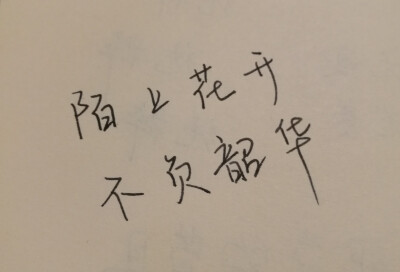 陌上花开
不负韶华